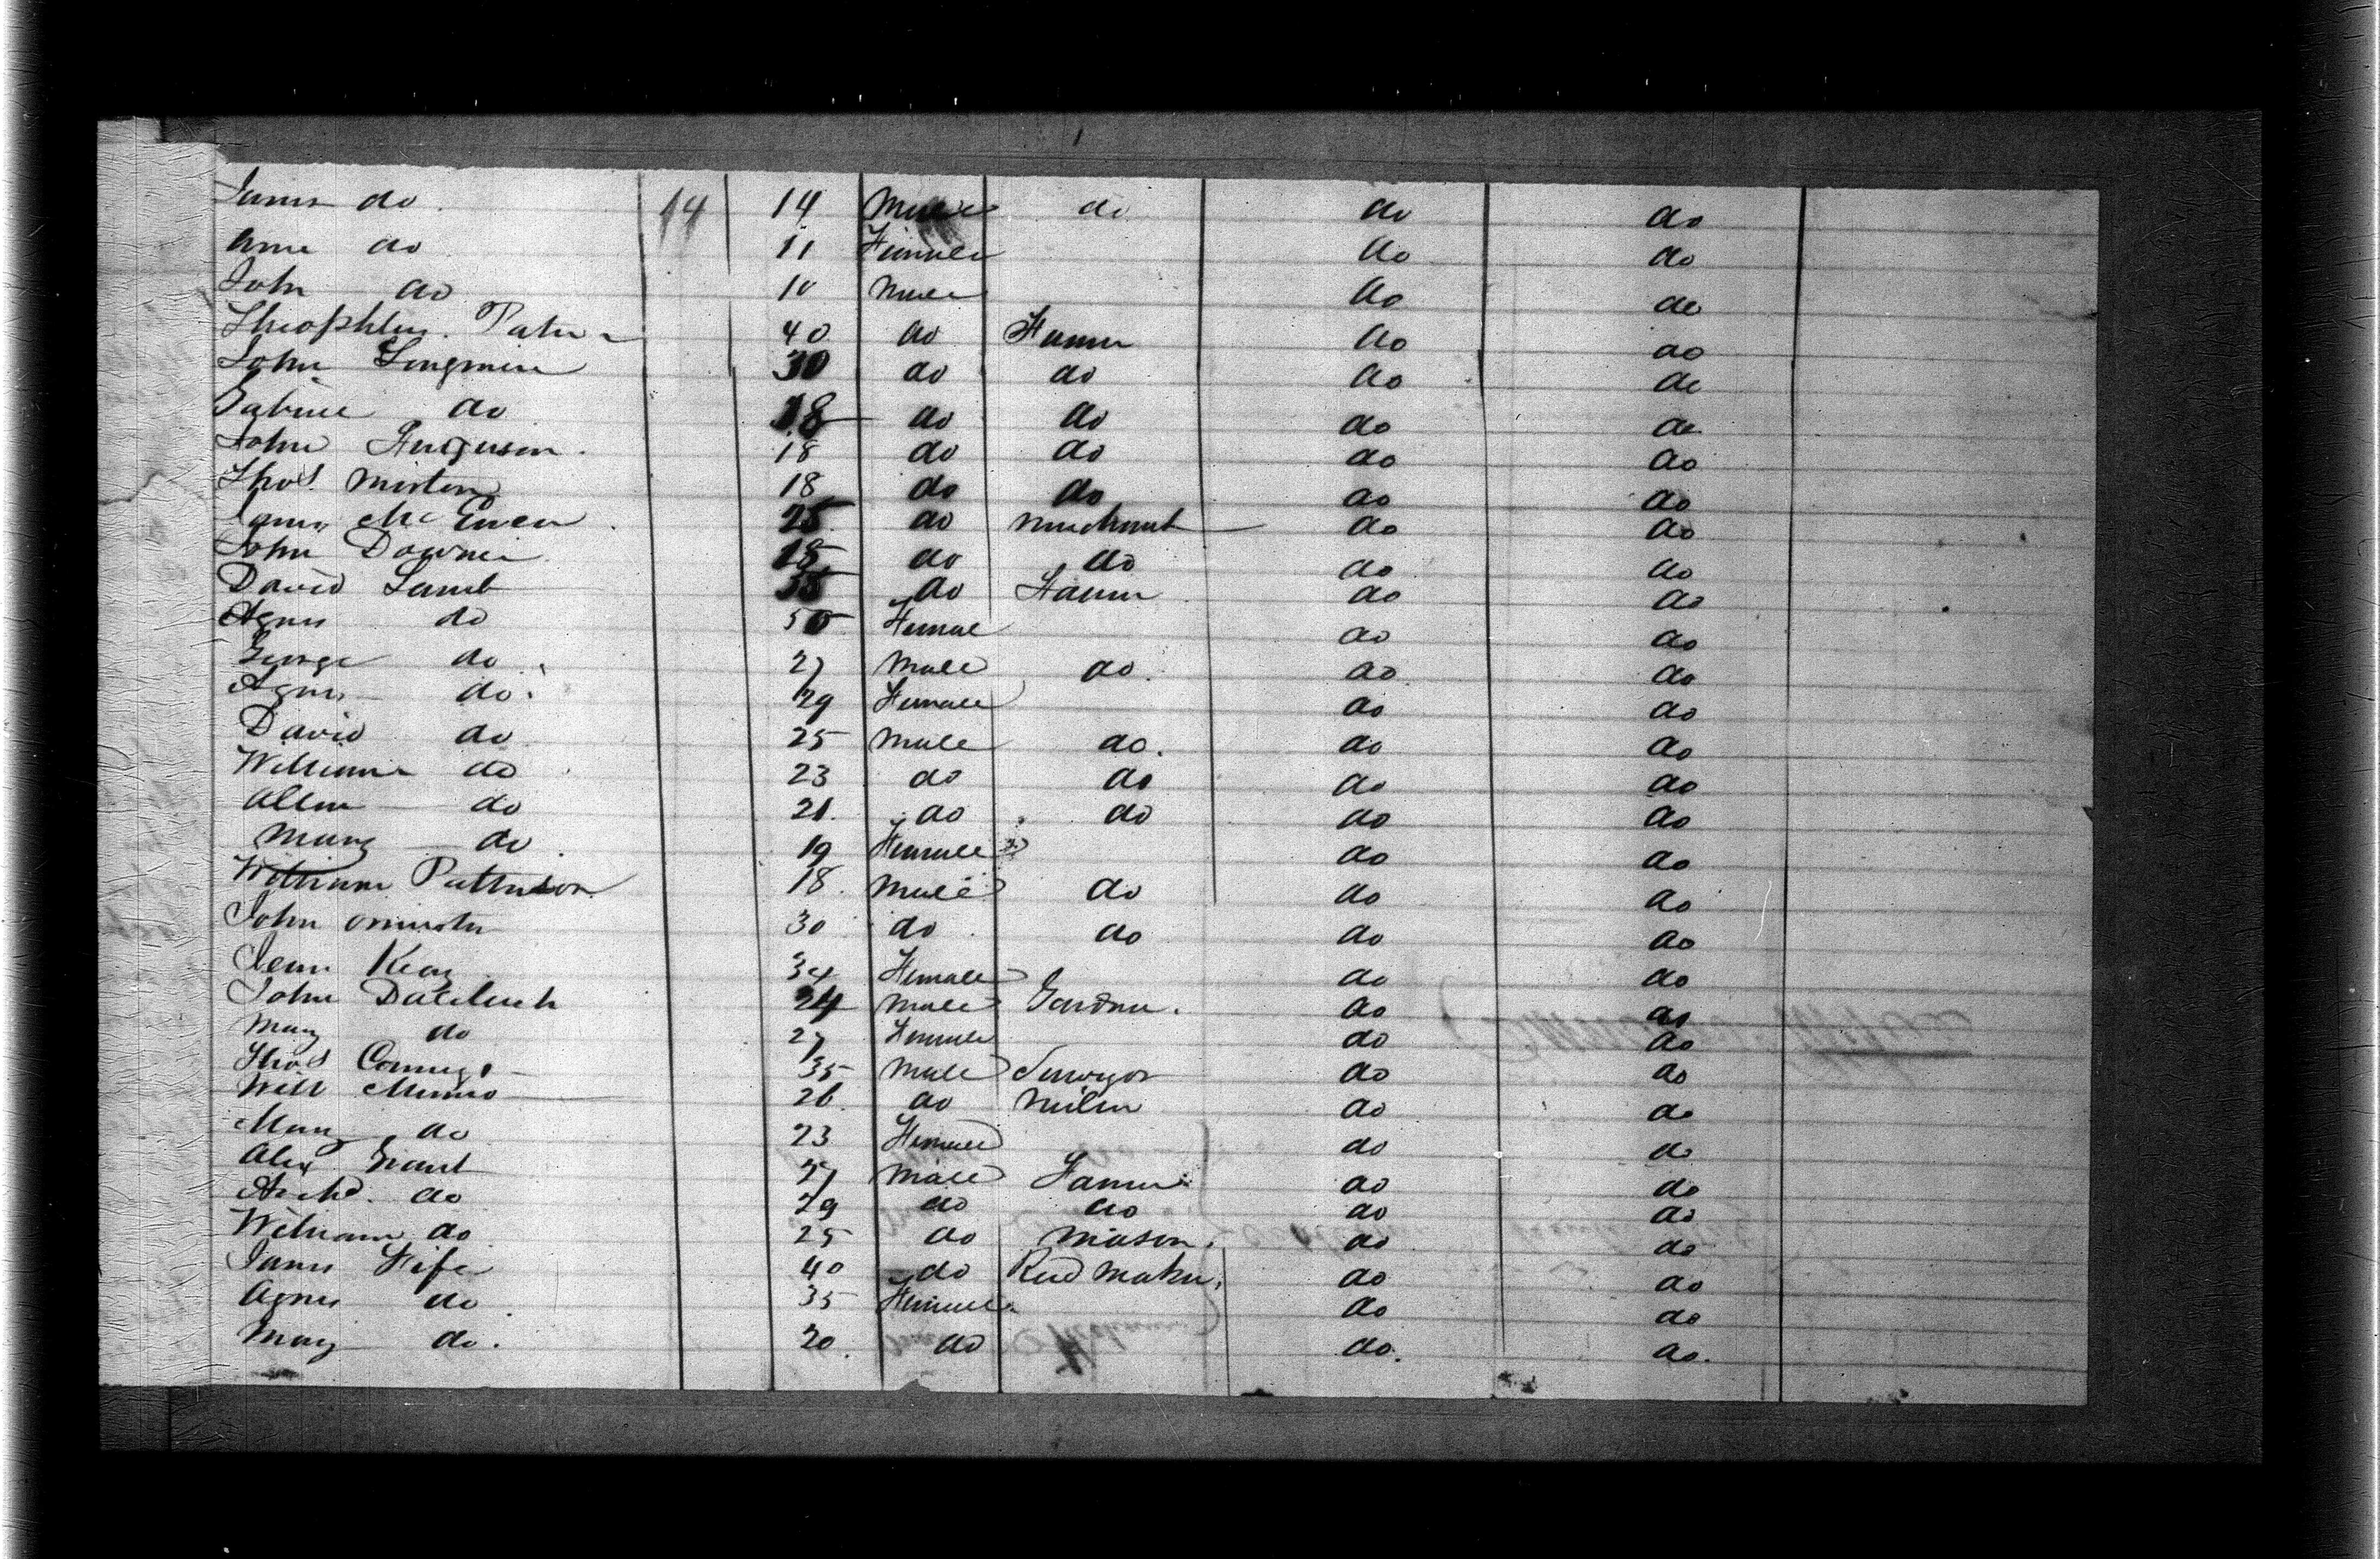 James do 14 14 Male do do do
Anne do 11 Female do do
John do 10 Male do do
Theophilus 40 do Farmer do do
John Longmire 30 do do do do
do 18 do do do do
John Ferguson 18 do do do do
Thos. 18 do do do do
James McEwen 25 do Merchant do do
John Downie 18 do do do do
David Lamb 55 do Farmer do do
Agnes do 50 Female do do
George do 27 Male do do do
Agnes do 29 Female do do
David do 25 Male do do do
William do 23 do do do do
Allen do 21 do do do do
Mary do 19 Female do do
William Patterson 18 Male do do do
John 30 do do do do
Jean Keay 34 Female do do
John 24 Male Gardner do do
Mary do 27 Female do do
Thos 35 Male Surveyor do do
Will Munro 26 do do do
Mary do 23 Female do do
Alex Grant 27 Male Farmer do do
Archd. do 29 do do do do
William do 25 do Mason do do
James Fife 40 do Reed Maker do do
Agnes do 35 Female do do
Mary do. 20 do do. do.